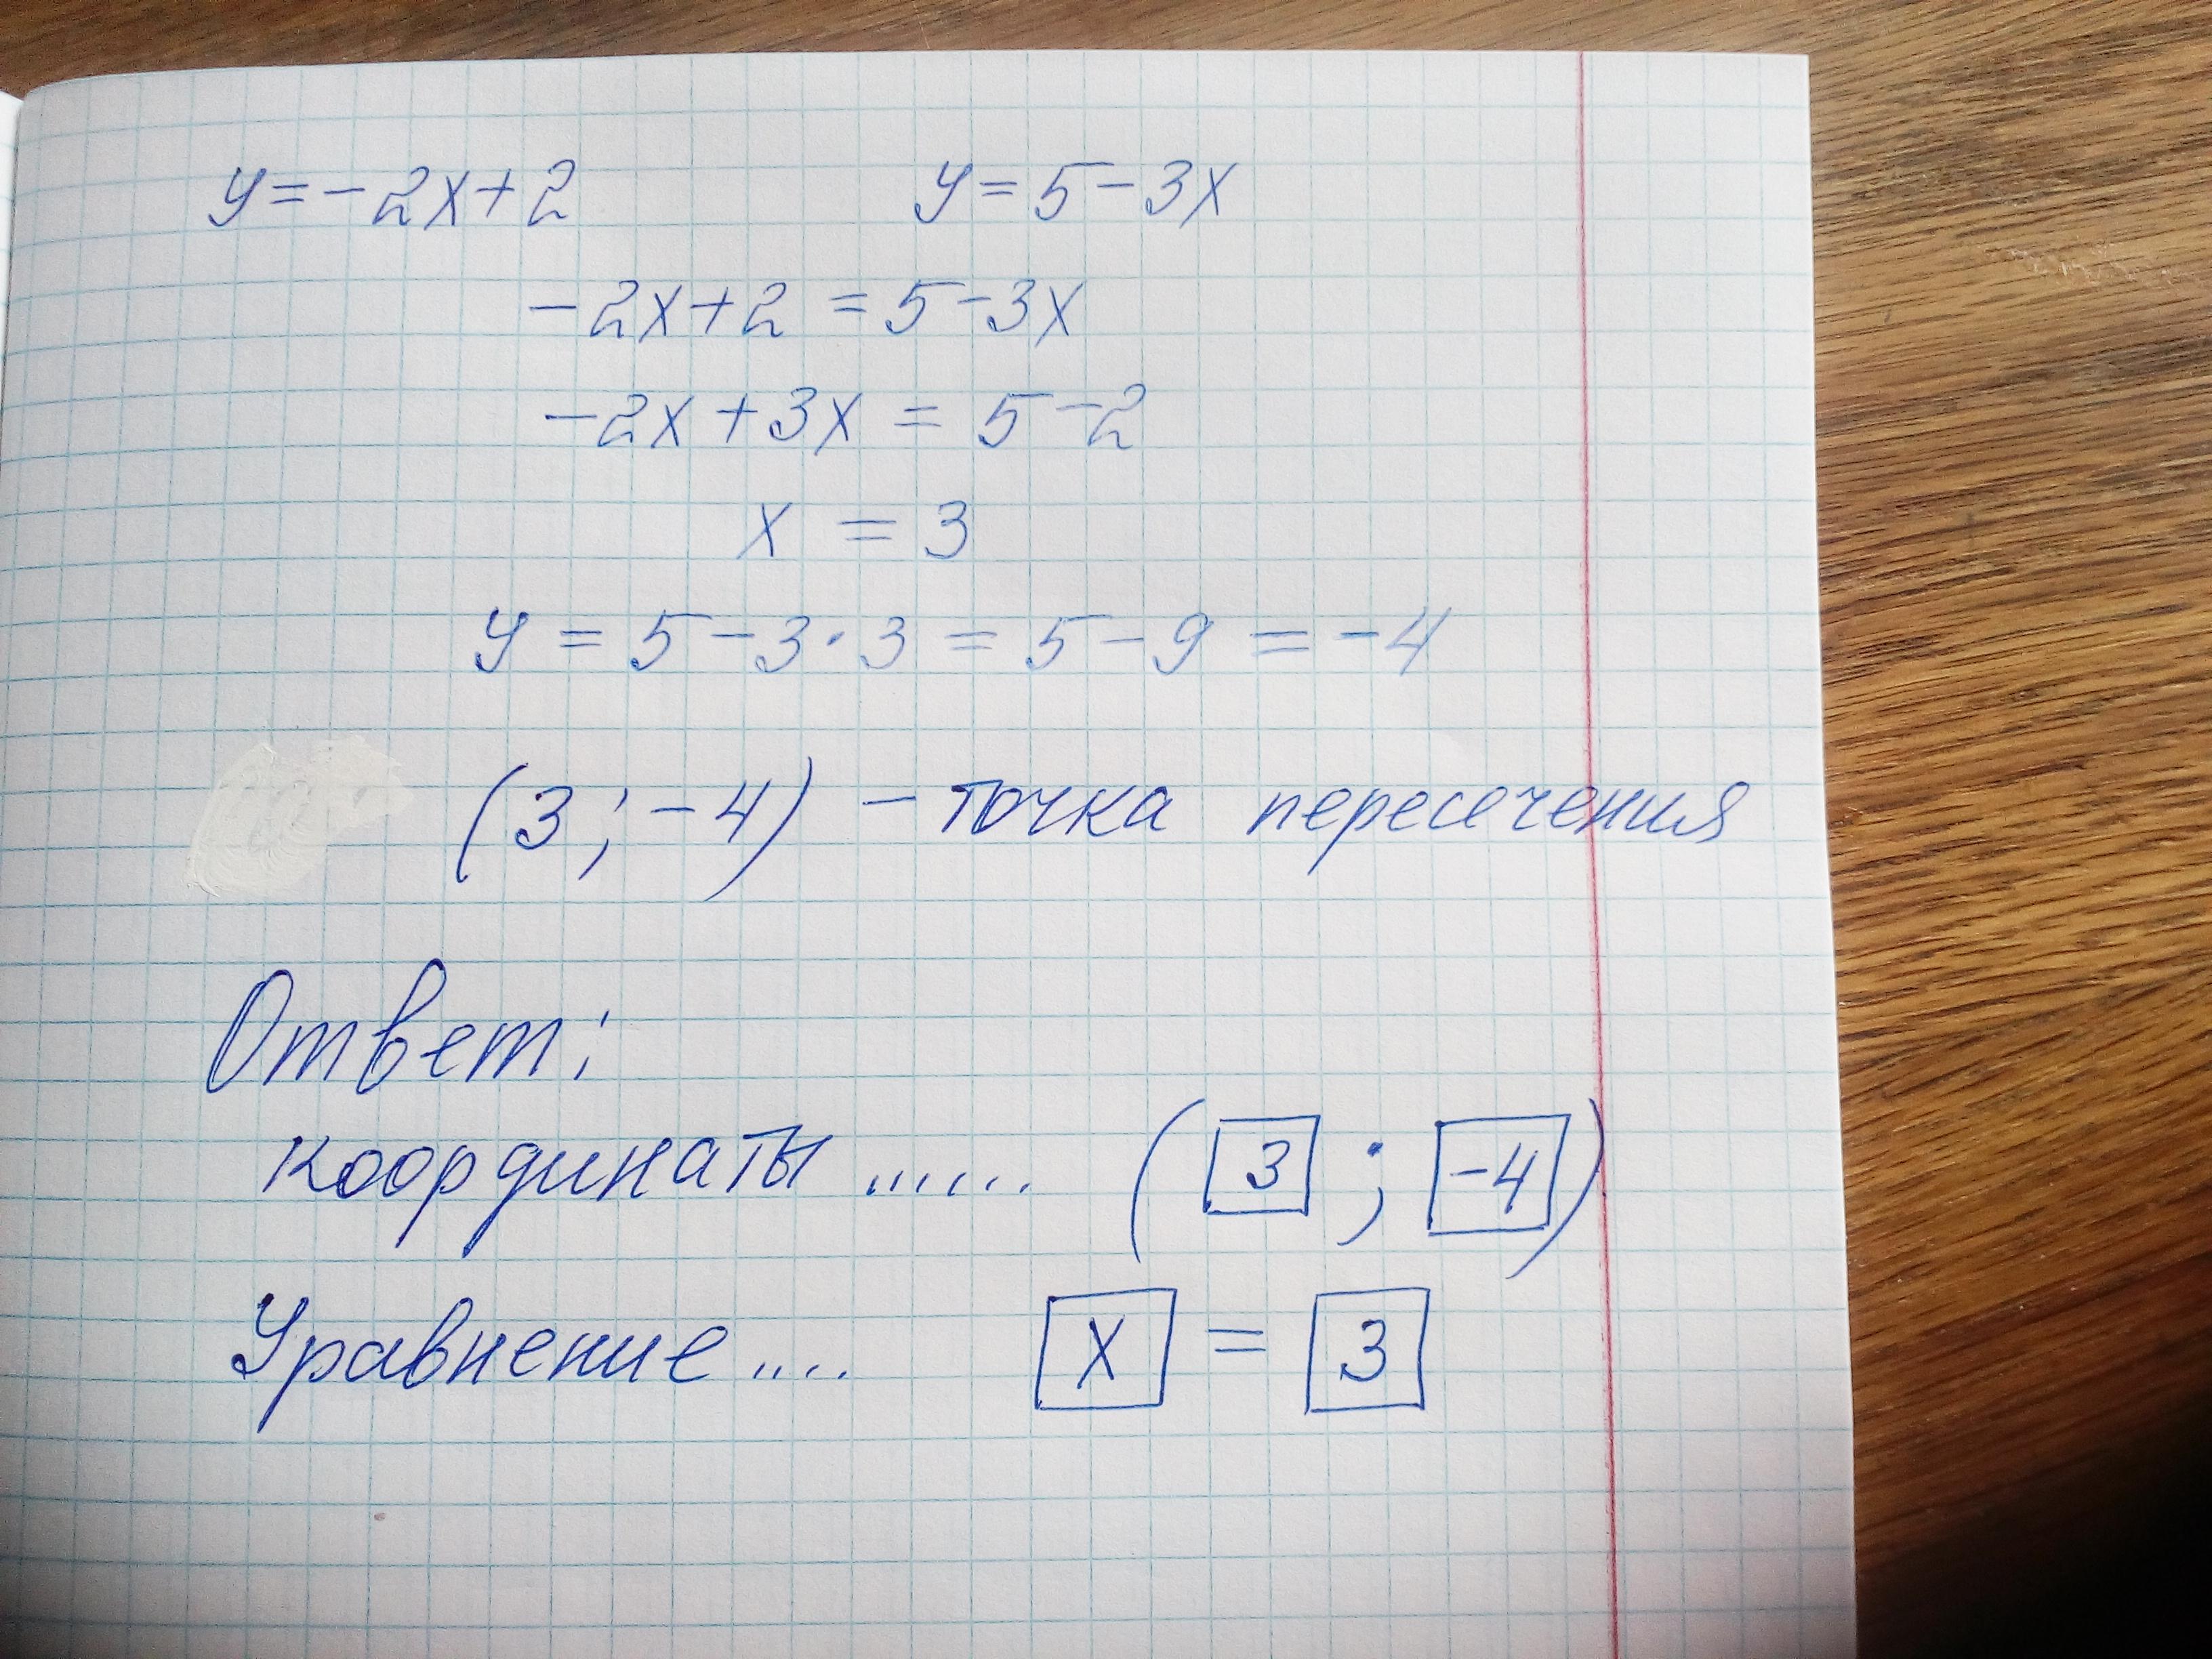 y=-2x+2 y=5-3x
-2x+2=5-3x
-2x+3x=5-2
x=3
y=5-3·3=5-9=-4
(3;-4) - точка пересечения
Ответ:
координаты ...... (3;-4)
Уравнение .... x=3